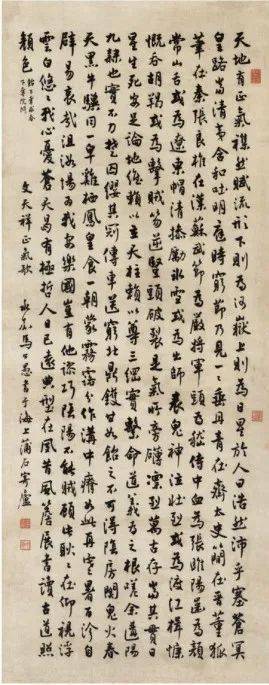 天地有正氣襍然賦流形下則為河嶽上則為日星於人曰浩然沛乎塞蒼冥
皇路當清夷含和吐明庭時窮節乃見一一垂丹青在齊太史簡在晉董狐
筆在秦張良椎在漢蘇武節為嚴將軍頭為嵇侍中血為張睢陽齒為顏
常山舌或為遼東帽清操勵冰雪或為出師表鬼神泣壯烈或為渡江楫慷
慨吞胡羯或為擊賊笏逆豎頭破裂是氣所旁礴凜烈萬古存當其貫日
星生死安足論地維賴以立天柱賴以尊三綱實繫命道義為之根嗟余遘陽
九隸也實不力楚囚纓其冠傳車送窮北鼎鑊甘如飴之不可得陰房闃鬼火春
天黑牛驥同一皁雞棲鳳皇食一朝蒙霧露分作溝中瘠如此再寒暑百沴自
辟易哀哉沮洳場為我安樂國豈有他謬巧陰陽不能賊顧此耿耿在仰視浮
雲白悠悠我心憂蒼天曷有極哲人日已遠典型在夙昔風簷展書讀古道照
顏色
飴下奪求春
下奪院
文天祥正氣歌 永嘉馬公愚書于海上蒲石寄廬